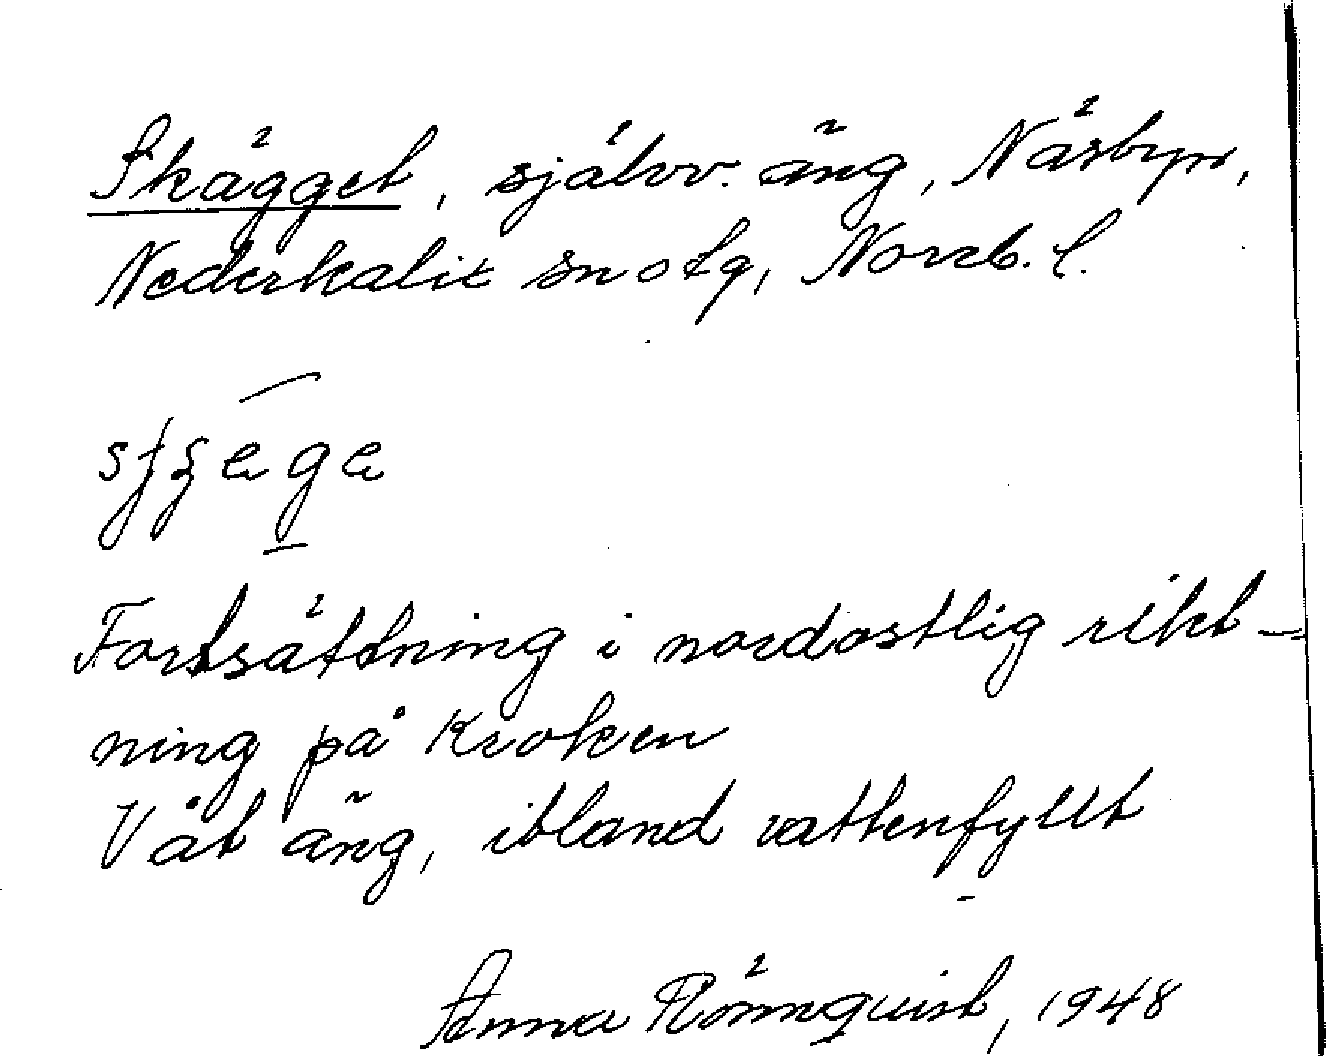 Skägget, självv. äng, Näsbyn,
Nederkalix snsfg, Norrb. l.
Fortsättning i nordostlig rikt-
ning på Kroken
Våt äng, ibland vattenfyllt
Anna Rönnquist, 1948